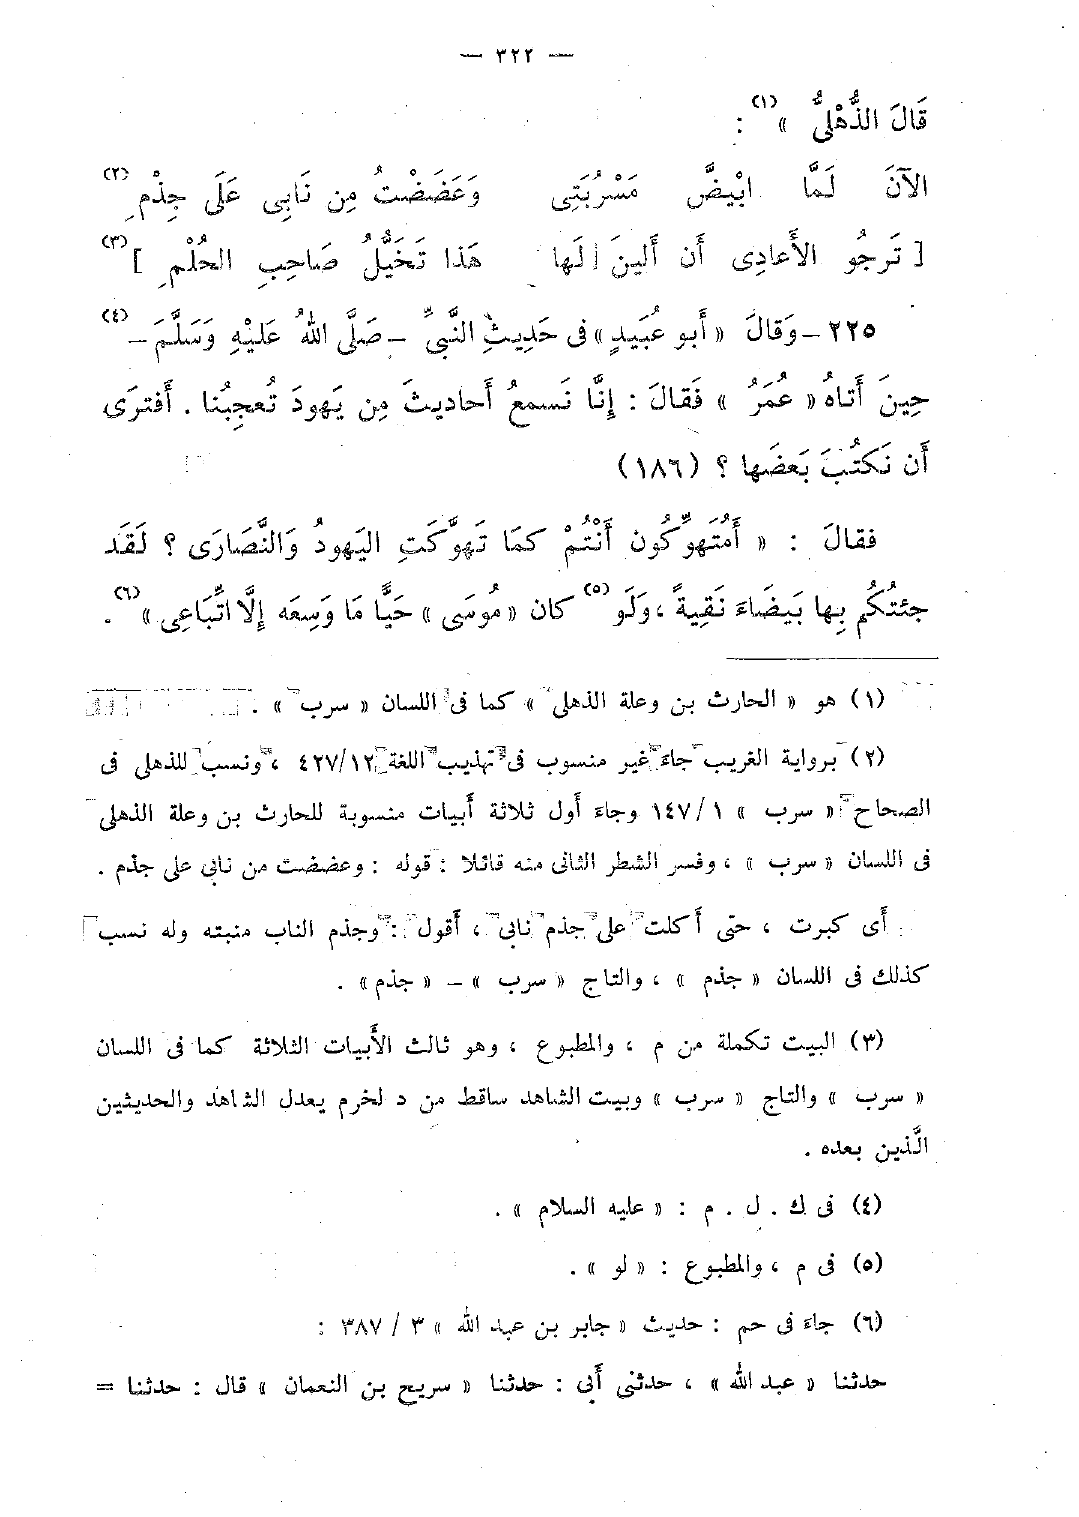 — ٣٢٢ —
قَالَ الذُّهْلِىُّ » (١) :
الآنَ لَمَّا ابْيَضَّ مَسْرُبَتِى وَعَضَضْتُ مِن نَابِى عَلَى جِذْمِ (٢)
[ تَرجُو الأَعادِى أَن أَلينَ لَها هَذا تَخَيُّلُ صَاحِبِ الحُلْمِ ] (٣)
٢٢٥ – وَقالَ « أَبو عُبَيدٍ » فى حَدِيثِ النَّبىِّ – صَلَّى اللهُ عَلَيْهِ وَسَلَّمَ – (٤)
حِينَ أَتاهُ « عُمَرُ » فَقالَ : إِنَّا نَسمعُ أَحاديثَ مِن يَهودَ تُعجِبُنا . أَفترَى
أَن نَكتُبَ بَعضَها ؟ (١٨٦)
فقالَ : « أَمُتَهوِّكُون أَنْتُمْ كمَا تَهوَّكَتِ اليَهودُ وَالنَّصَارَى ؟ لَقَد
جئتُكُم بِها بَيضَاءَ نَقِيةً ، وَلَو (٥) كان « مُوسَى » حَيًّا مَا وَسِعَه إِلَّا اتِّبَاعِى » (٦) .
(١) هو « الحارث بن وعلة الذهلى » كما فى اللسان « سرب » .
(٢) برواية الغريب جاء غير منسوب فى تهذيب اللغة ٤٢٧/١٢ ، ونسب للذهلى فى
الصحاح « سرب » ١٤٧/١ وجاء أول ثلاثة أبيات منسوبة للحارث بن وعلة الذهلى
فى اللسان « سرب » ، وفسر الشطر الثانى منه قائلا : قوله : وعضضت من نابى على جذم .
أى كبرت ، حتى أكلت على جذم نابى ، أقول : وجذم الناب منبته وله نسب
كذلك فى اللسان « جذم » ، والتاج « سرب » – « جذم » .
(٣) البيت تكملة من م ، والمطبوع ، وهو ثالث الأبيات الثلاثة كما فى اللسان
« سرب » والتاج « سرب » وبيت الشاهد ساقط من د لخرم يعدل الشاهد والحديثين
الَّذين بعده .
(٤) فى ك . ل . م : « عليه السلام » .
(٥) فى م ، والمطبوع : « لو » .
(٦) جاء فى حم : حديث « جابر بن عبد الله » ٣ / ٣٨٧ :
حدثنا « عبد الله » ، حدثنى أبى : حدثنا « سريج بن النعمان » قال : حدثنا =